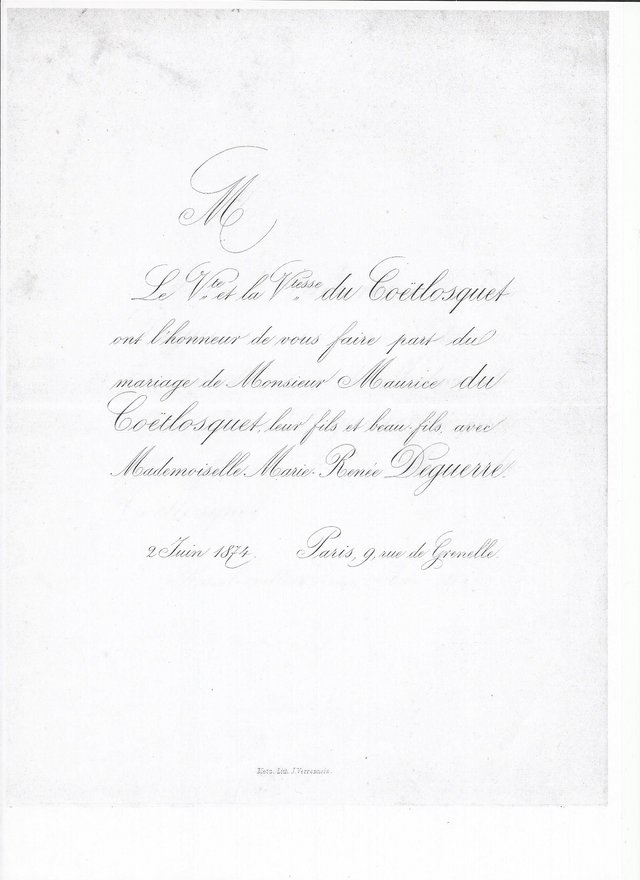 M
Le Vte et la Vtesse du Coëtlosquet
ont l'honneur de vous faire part du
mariage de Monsieur Maurice du
Coëtlosquet, leur fils et beau-fils, avec
Mademoiselle Marie-Renée Deguerre.
2 Juin 1874. Paris, 9, rue de Grenelle.
Metz. Lith. J. Verronnais.